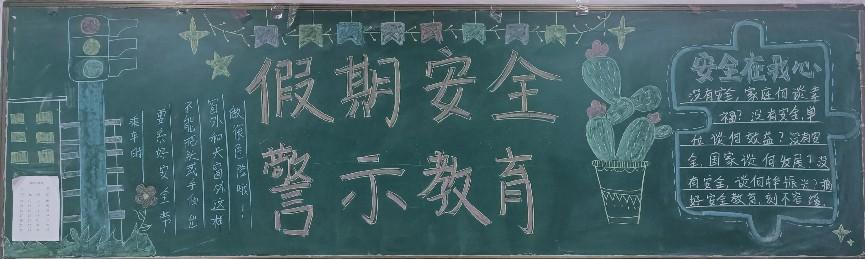 乘车时
要系好安全带
不能把头或手伸出
窗外和天窗外这样
做很危险哦！
假期安全
警示教育
安全在我心
没有安全，家庭何谈幸
福？没有安全，单
位谈何效益？没有安
全，国家谈何发展？没
有安全，谈何振兴？搞
好安全教育，刻不容缓